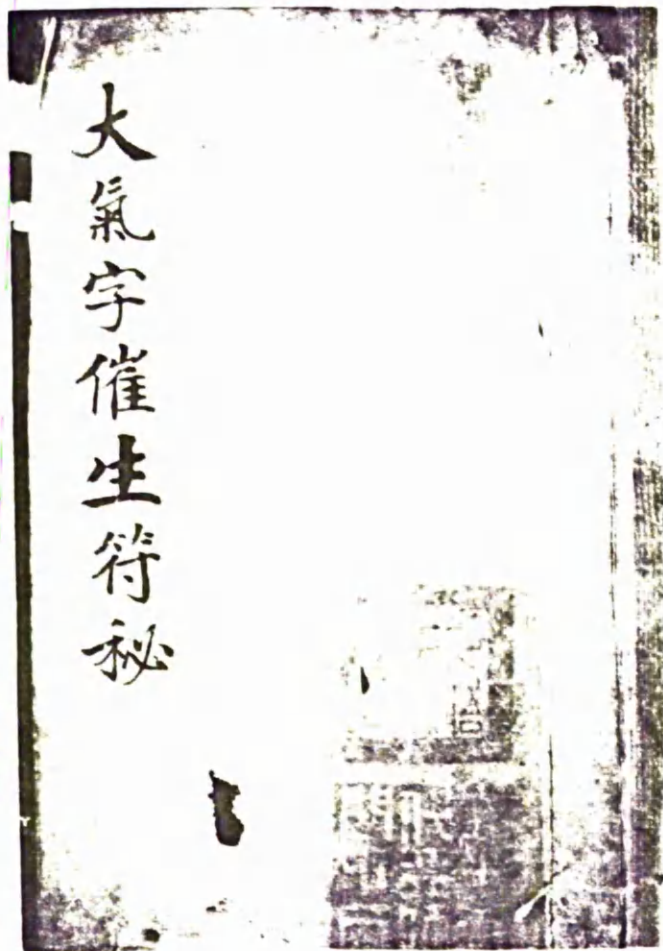 大氣字催生符秘